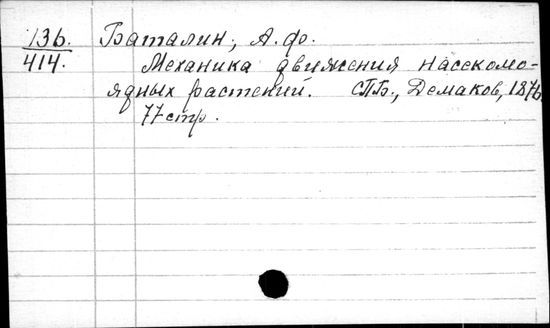 136. Баталин, А. Ф.
414. Механика движения насекомо-
ядных растений. СПБ., Демаков, 1876.
77 стр.